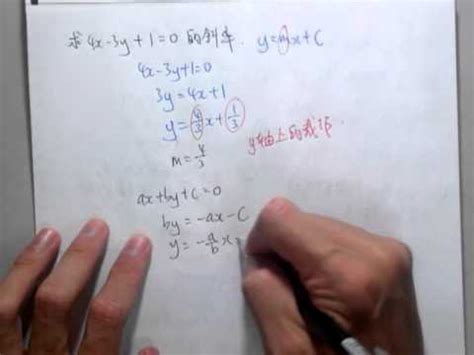 求 4x-3y+1=0 的斜率. y=mx+C
4x-3y+1=0
3y=4x+1
y=4/3x+1/3
y轴上的截距
m=4/3
ax+by+C=0
by=-ax-C
y=-a/bx